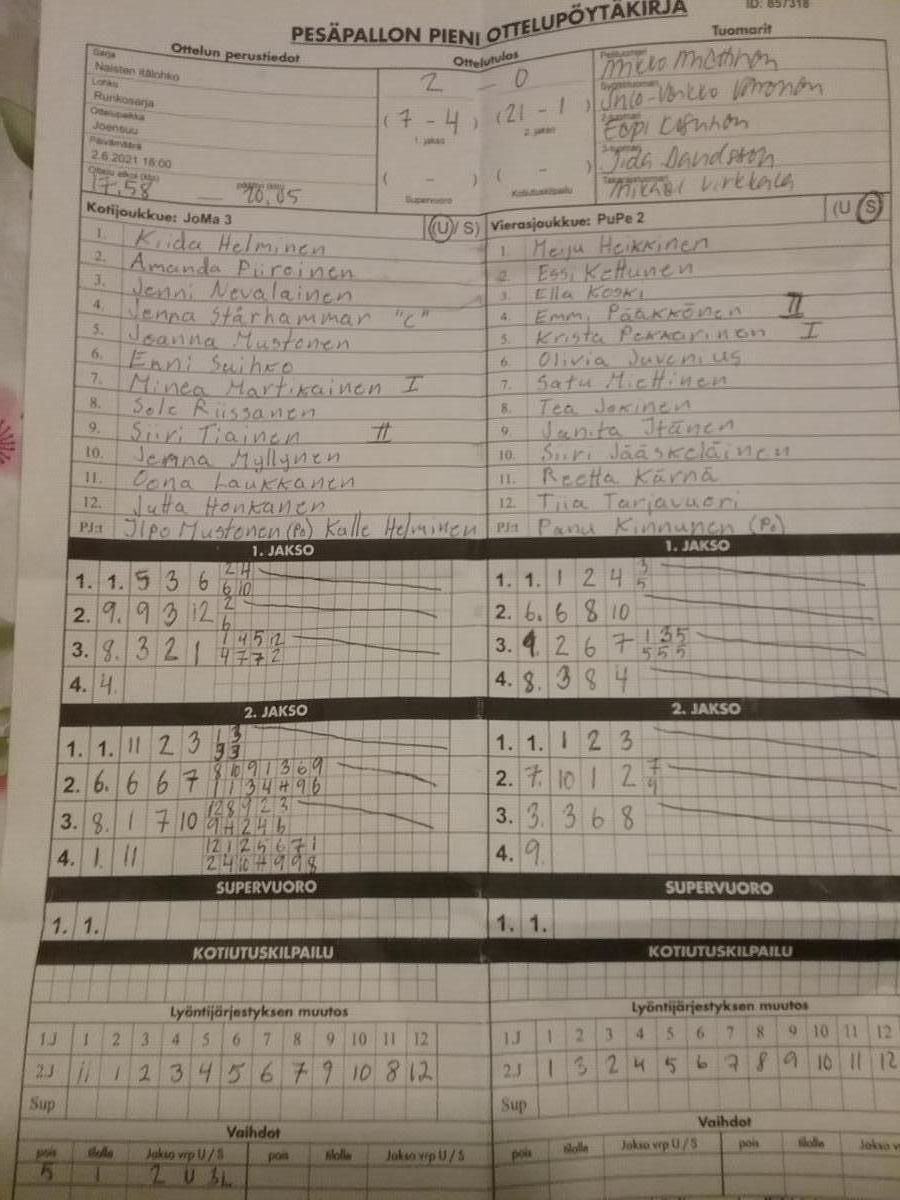 PESÄPALLON PIENI OTTELUPÖYTÄKIRJA
ID: 857318
Ottelun perustiedot
Ottelutulos
Tuomarit
Sarja
Naisten itälohko
Lohko
Runkosarja
Ottelupaikka
Joensuu
Päivämäärä
2.6.2021 18:00
17.58 — 20,05
2 - 0
(7 - 4) (21 - 1)
1. jakso 2. jakso
( - ) ( - )
Supervuoro Kotiutuskilpailu
Pelituomari
Syöttötuomari
2-tuomari
3-tuomari
Takarajatuomari
Kotijoukkue: JoMa 3 (U/S)
1. Kiida Helminen
2. Amanda Piiroinen
3. Jenni Nevalainen
4. Jenna Stårhammar "C"
5. Joanna Mustonen
6. Enni Suihko
7. Minea Martikainen I
8. Sole Riissanen
9. Siiri Tiainen II
10. Jemna Myllynen
11. Oona Laukkanen
12. Jutta Honkanen
PJ:t Ilpo Mustonen (Po) Kalle Helminen
Vierasjoukkue: PuPe 2 (U S)
1. Meiju Heikkinen
2. Essi Kettunen
3. Ella Koski
4. Emmi Pääkkönen II
5. Krista Pekkarinen I
6. Olivia Juvenius
7. Satu Miettinen
8. Tea Jokinen
9. Janita Itänen
10. Siiri Jääskeläinen
11. Reetta Kärnä
12. Tiia Tarjavuori
PJ:t Panu Kinnunen (Po)
1. JAKSO
1. 1. 5 3 6 2 4
6 10
2. 9. 9 3 12 2
6
3. 8. 3 2 1 1 4 5 12
4 7 7 2
4. 4.
1. JAKSO
1. 1. 1 2 4 3
5
2. 6. 6 8 10
3. 9. 2 6 7 1 3 5
5 5 5
4. 8. 3 8 4
2. JAKSO
1. 1. 11 2 3 1 3
9 3
2. 6. 6 6 7 8 10 9 1 3 6 9
1 1 3 4 4 9 6
3. 8. 1 7 10 12 8 9 2 3
9 4 2 4 6
4. 1. 11 12 1 2 5 6 7 1
2 4 10 4 9 9 8
2. JAKSO
1. 1. 1 2 3
2. 7. 10 1 2 7
9
3. 3. 3 6 8
4. 9.
SUPERVUORO
1. 1.
SUPERVUORO
1. 1.
KOTIUTUSKILPAILU
KOTIUTUSKILPAILU
Lyöntijärjestyksen muutos
1.J 1 2 3 4 5 6 7 8 9 10 11 12
2.J 11 1 2 3 4 5 6 7 9 10 8 12
Sup
Lyöntijärjestyksen muutos
1.J 1 2 3 4 5 6 7 8 9 10 11 12
2.J 1 3 2 4 5 6 7 8 9 10 11 12
Sup
Vaihdot
pois tilalle Jakso vrp U / S pois tilalle Jakso vrp U / S
5 1 2 U 3L
Vaihdot
pois tilalle Jakso vrp U / S pois tilalle